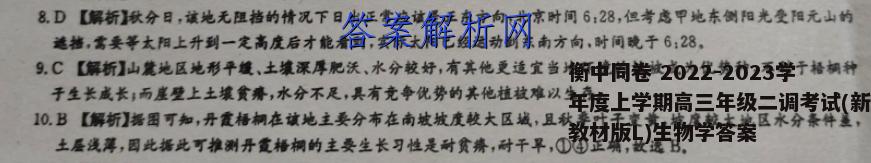 8.D 【解析】秋分日,该地无阻挡的情况下日 京时间 6:28,但考虑甲地东侧阳光受阳元山的
答案解析网
遮挡,需要等太阳上升到一定高度后才能看 东南方向,时间晚于 6:28。
9.C 【解析】山麓地区地形平缓、土壤深厚肥沃、水分较好,有其他更适宜当 梧桐种
子生长成长;而崖壁上土壤贫瘠,水分不足,具有竞争优势的其他植被难以生
衡中同卷 2022-2023学
年度上学期高三年级二调考试(新
教材版L)生物学答案
10.B 【解析】据图可知,丹霞梧桐在该地主要分布在南坡坡度较大区域,且秋 水分条件差,
土层浅薄,因此据此可推测丹霞梧桐的主要生长习性是耐贫瘠,耐干旱,①④正确,故选B。